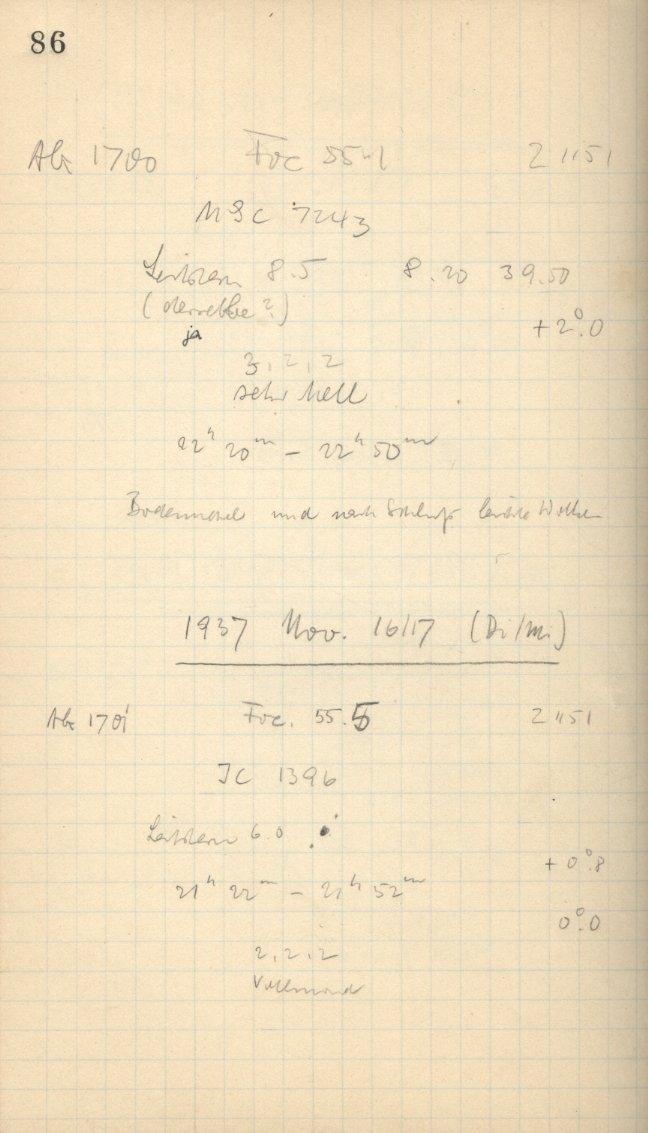 86
Ab 1700 Foc 55.1 Z 1151
NGC 7243
Leitstern 8.5 8.20 39.50
(derselbe?)
ja +2°.0
3, 2, 2
sehr hell
22h 20m – 22h 50m
Bodennebel und nach Schluß leichte Wolken
1937 Nov. 16/17 (Di/Mi)
Ab 1701 Foc. 55.5 Z 1151
IC 1396
Leitstern 6.0
+0°.8
21h 22m – 21h 52m
0°.0
2, 2, 2
Vollmond